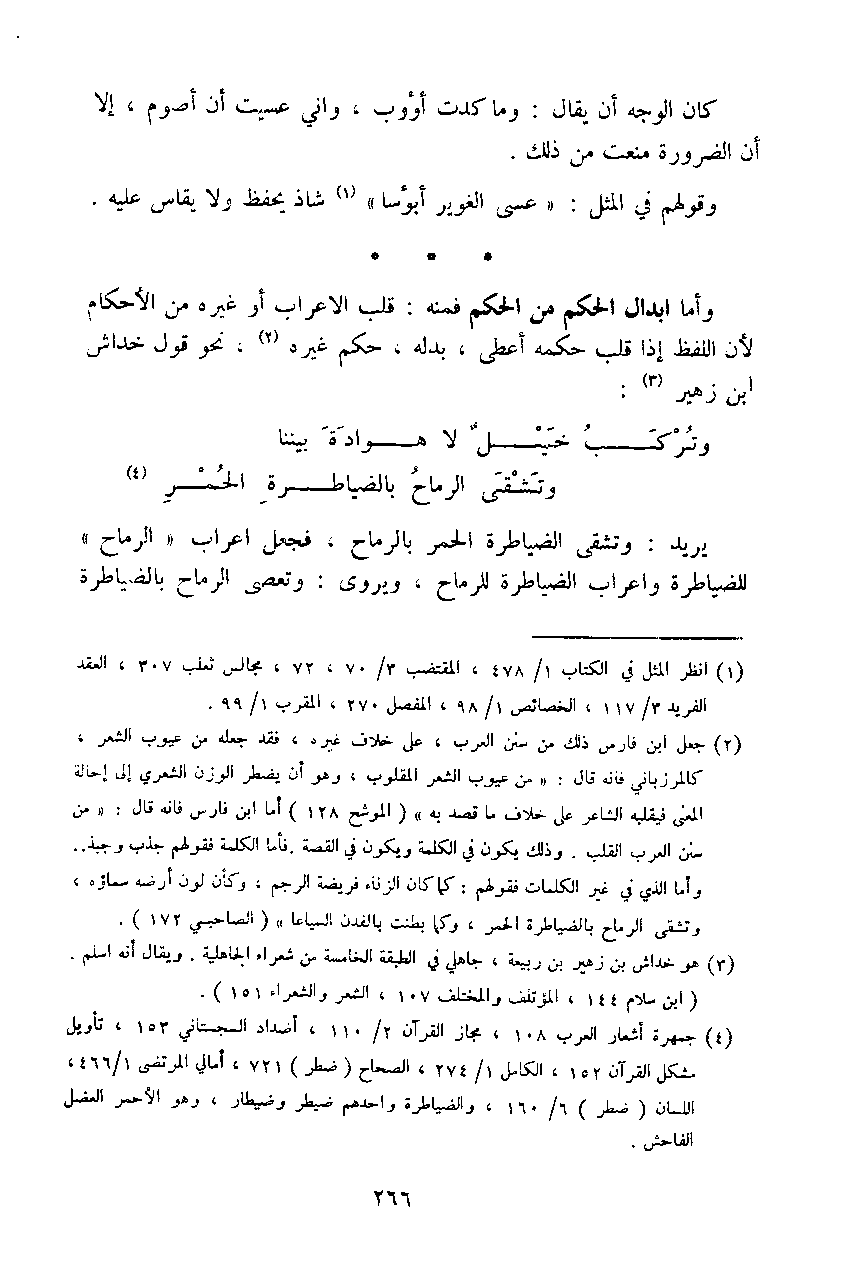 كان الوجه أن يقال : وماكدت أوُوب ، واني عسيت أن أصوم ، إلا
أن الضرورة منعت من ذلك .
وقولهم في المثل : « عسى الغوير أبوُسا » (١) شاذ يحفظ ولا يقاس عليه .
* * *
وأما ابدال الحكم من الحكم فمنه : قلب الاعراب أو غيره من الأحكام
لأن اللفظ إذا قلب حكمه أعطى ، بدله ، حكم غيره (٢) ، نحو قول خداش
ابن زهير (٣) :
وتُرْكَبُ خَيْلٌ لا هوادَةَ بيننا
وتَشْقَى الرماحُ بالضياطرةِ الحُمْرِ (٤)
يريد : وتشقى الضياطرة الحمر بالرماح ، فجعل اعراب « الرماح »
للضياطرة واعراب الضياطرة للرماح ، ويروى : وتعصى الرماح بالضياطرة
(١) انظر المثل في الكتاب ١/ ٤٧٨ ، المقتضب ٣/ ٧٠ ، ٧٢ ، مجالس ثعلب ٣٠٧ ، العقد
الفريد ٣/ ١١٧ ، الخصائص ١/ ٩٨ ، المفصل ٢٧٠ ، المقرب ١/ ٩٩ .
(٢) جعل ابن فارس ذلك من سنن العرب ، على خلاف غيره ، فقد جعله من عيوب الشعر ،
كالمرزباني فانه قال : « من عيوب الشعر المقلوب ، وهو أن يضطر الوزن الشعري إلى إحالة
المعنى فيقلبه الشاعر على خلاف ما قصد به » ( الموشح ١٢٨ ) أما ابن فارس فانه قال : « من
سنن العرب القلب . وذلك يكون في الكلمة ويكون في القصة .فأما الكلمة فقولهم جذب وجبذ..
وأما الذي في غير الكلمات فقولهم : كما كان الزناء فريضة الرجم ، وكأن لون أرضه سماؤه ،
وتشقى الرماح بالضياطرة الحمر ، وكما بطنت بالفدن السياعا » ( الصاحبي ١٧٢ ) .
(٣) هو خداش بن زهير بن ربيعة ، جاهلي في الطبقة الخامسة من شعراء الجاهلية . ويقال أنه اسلم .
( ابن سلام ١٤٤ ، المؤتلف والمختلف ١٠٧ ، الشعر والشعراء ١٥١ ) .
(٤) جمهرة أشعار العرب ١٠٨ ، مجاز القرآن ٢/ ١١٠ ، أضداد السجستاني ١٥٣ ، تأويل
مشكل القرآن ١٥٢ ، الكامل ١/ ٢٧٤ ، الصحاح ( ضطر ) ٧٢١ ، أمالي المرتضى ١/٤٦٦،
اللسان ( ضطر ) ٦/ ١٦٠ ، والضياطرة واحدهم ضيطر وضيطار ، وهو الأحمر العضل
الفاحش .
٢٦٦